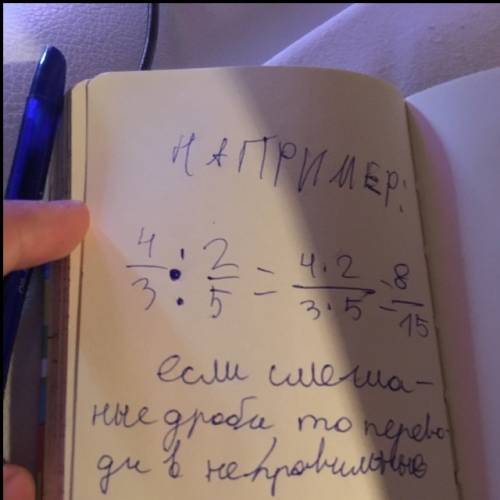 НАПРИМЕР:
4/3 : 2/5 = 4·2/3·5 = 8/15
если смеша-
ные дроби, то перево-
ди в неправильные